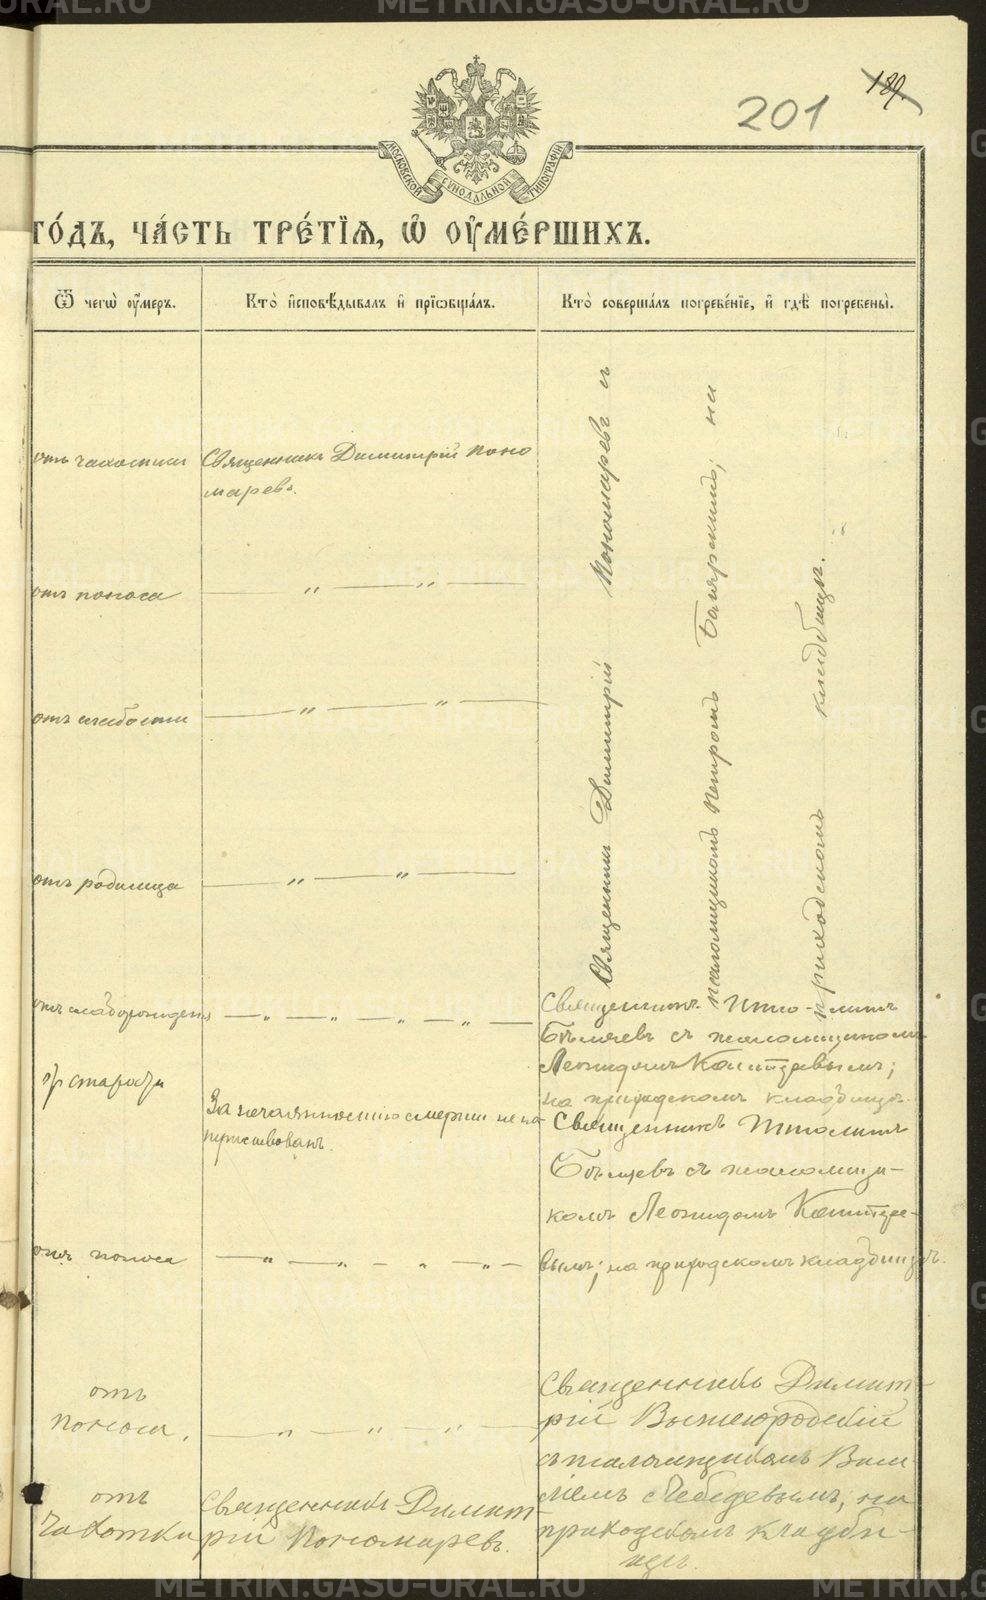 METRIKI.GASU-URAL.RU
201
189.
МОСКОВСКОЙ СѴНОДАЛЬНОЙ ТИПОГРАФІИ
ГО́ДЪ, ЧА́СТЬ ТРЕ́ТІѦ, Ѽ ОУ҆МЕ́РШИХЪ.
Ѿ чегѡ̀ оу҆́меръ.
Кто̀ и҆сповѣ́дывалъ и҆ прїѡбща́лъ.
Кто̀ соверша́лъ погребе́нїе, и҆ гдѣ̀ погребены̀.
отъ чахотки
Священникъ Димитрій Поно
маревъ.
Священникъ Димитрій Пономаревъ и
псаломщикомъ Петромъ Боярскимъ, на
приходскомъ кладбищѣ.
отъ поноса
— „ — „ —
отъ слабости
— „ — „ —
отъ родимца
— „ — „ —
отъ слаборожденія
— „ — „ — „ — „ —
Священникъ Ипполитъ
Бѣляевъ съ псаломщикомъ
Леонидомъ
на приходскомъ кладбищѣ.
отъ старости
За нечаянностію смерти не на
путствованъ.
Священникъ Ипполитъ
Бѣляевъ съ псаломщи-
комъ Леонидомъ
вымъ; на приходскомъ кладбищѣ.
отъ поноса
— „ — „ — „ — „ —
отъ
поноса.
— „ — „ — „ —
Священникъ Димит-
рій Вышегородскій
съ псаломщикомъ Васи
Лебедевымъ, на
приходскомъ кладби-
щѣ.
отъ
чахотки
Священникъ Димит
рій Пономаревъ.